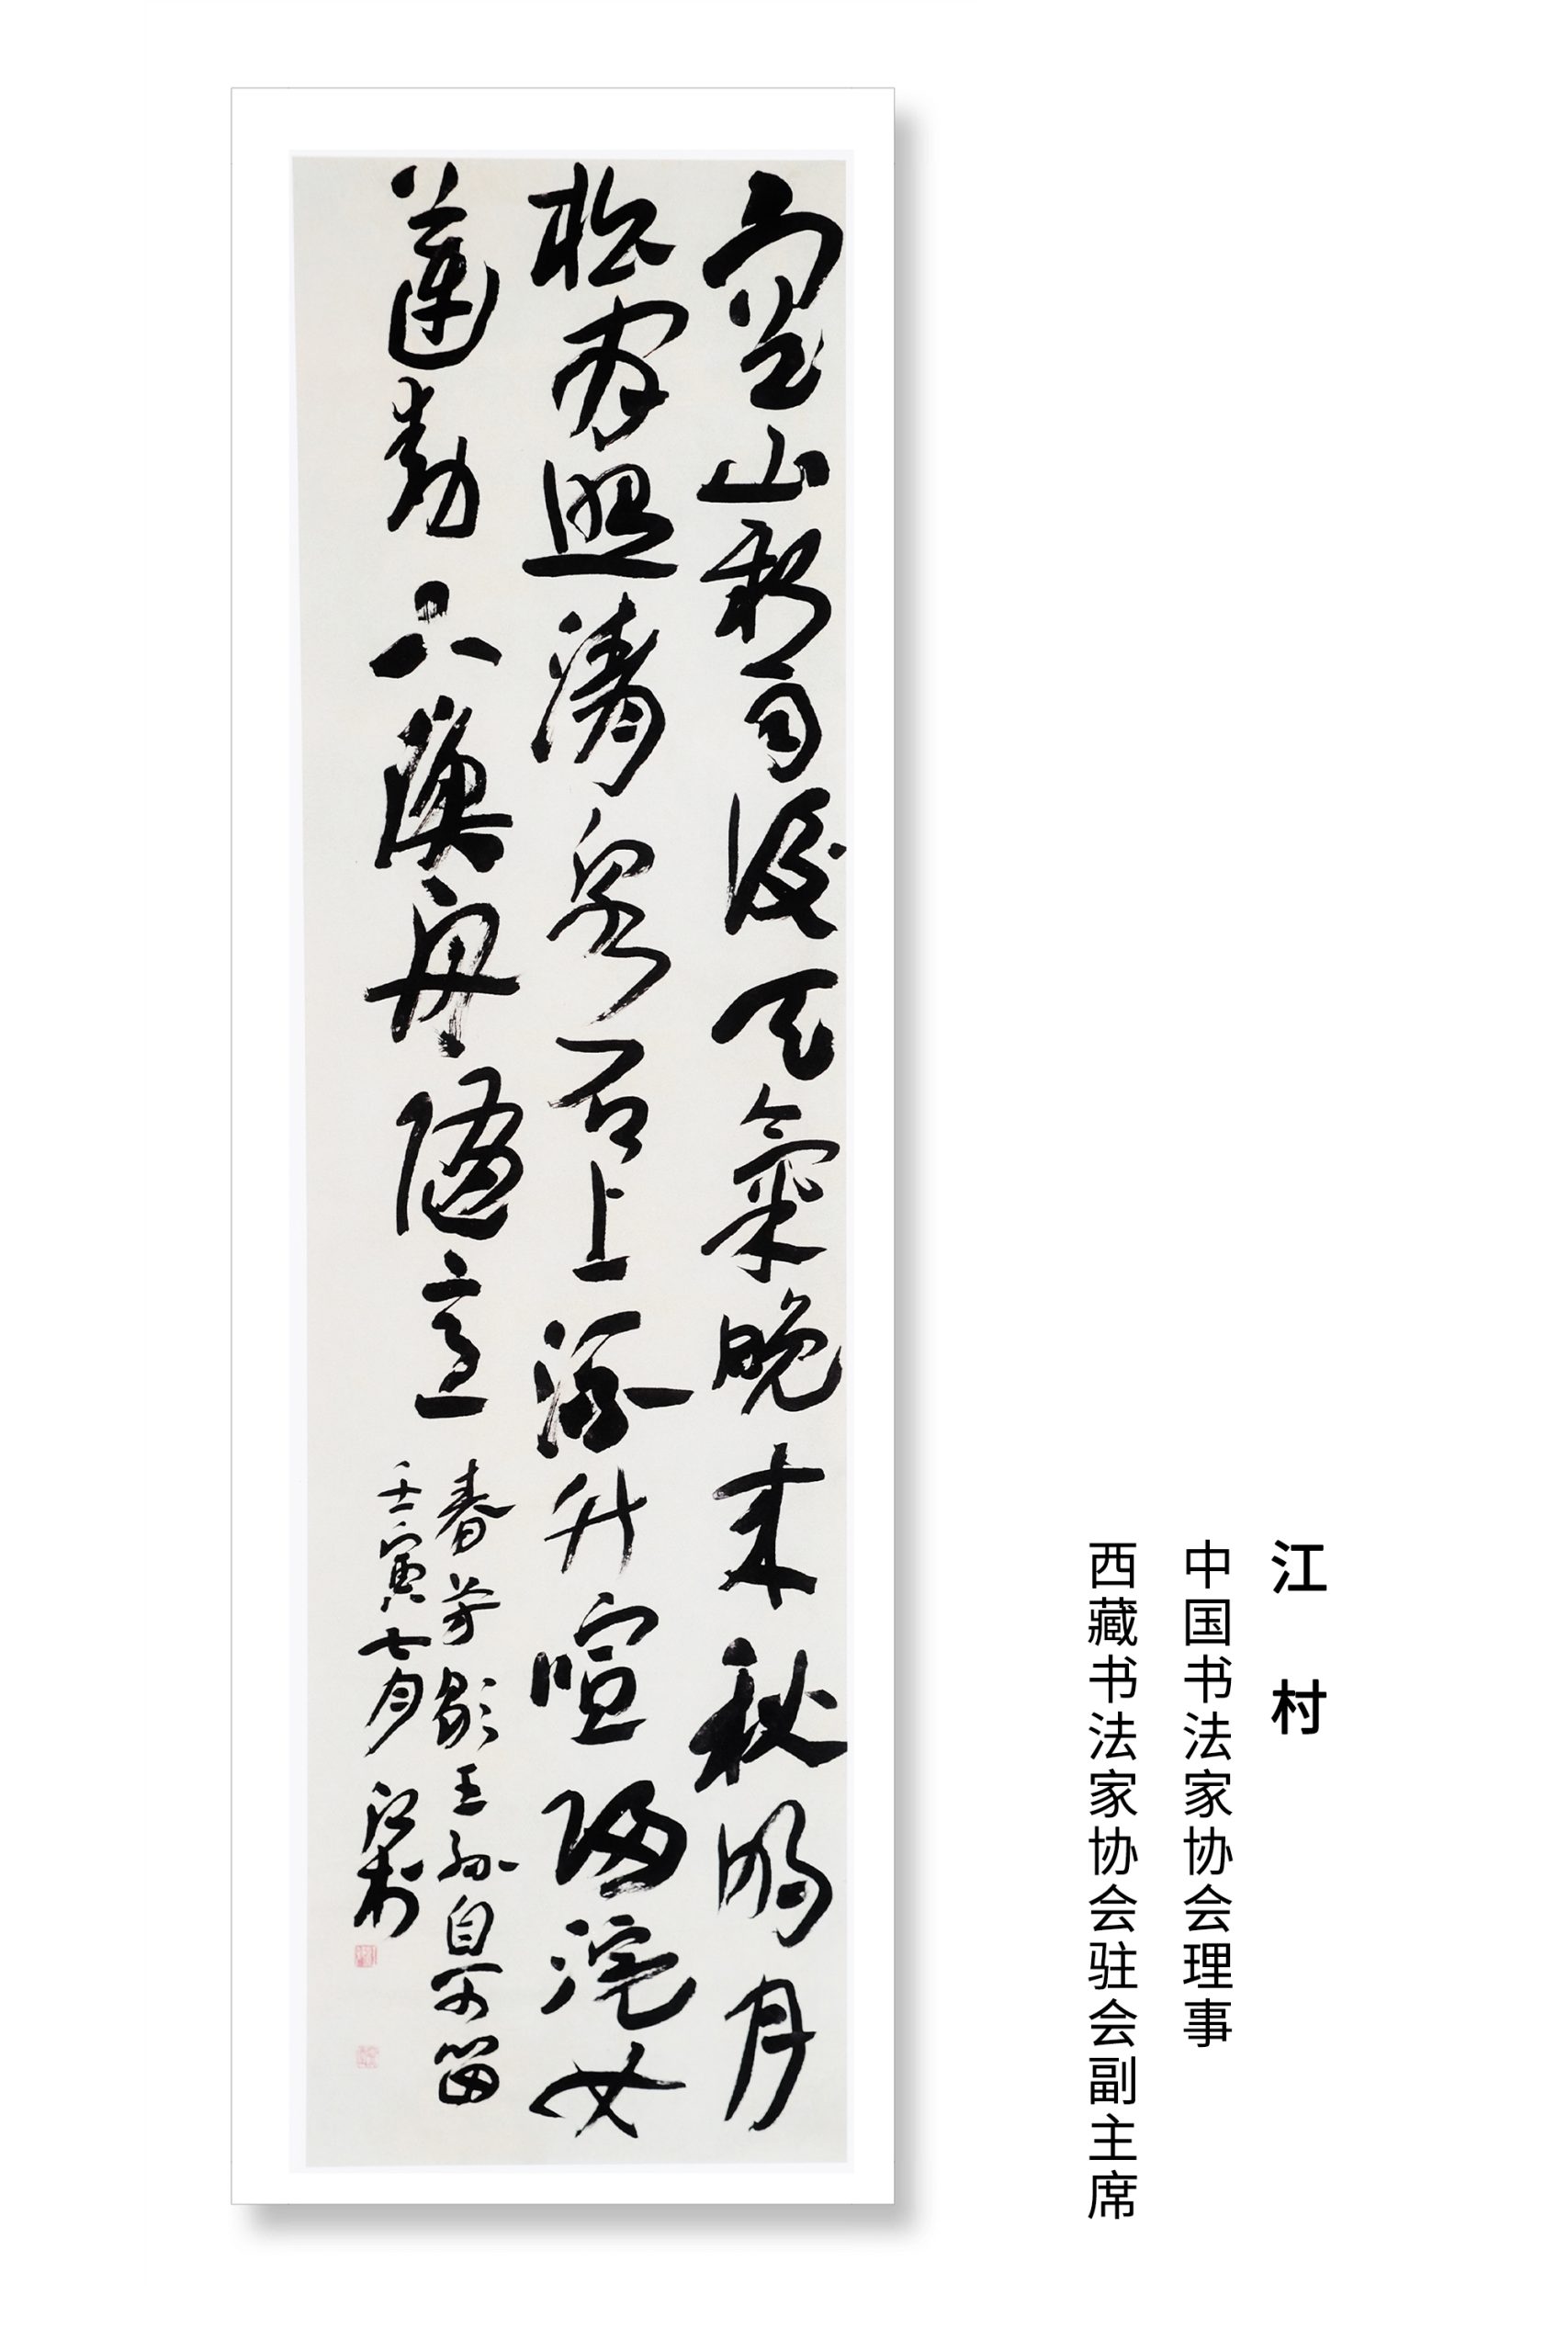 江村
中国书法家协会理事
西藏书法家协会驻会副主席
空山新雨後天氣晚来秋明月
松間照清泉石上流竹喧歸浣女
蓮動下漁舟随意
春芳歇王孫自可留
壬寅七月江村